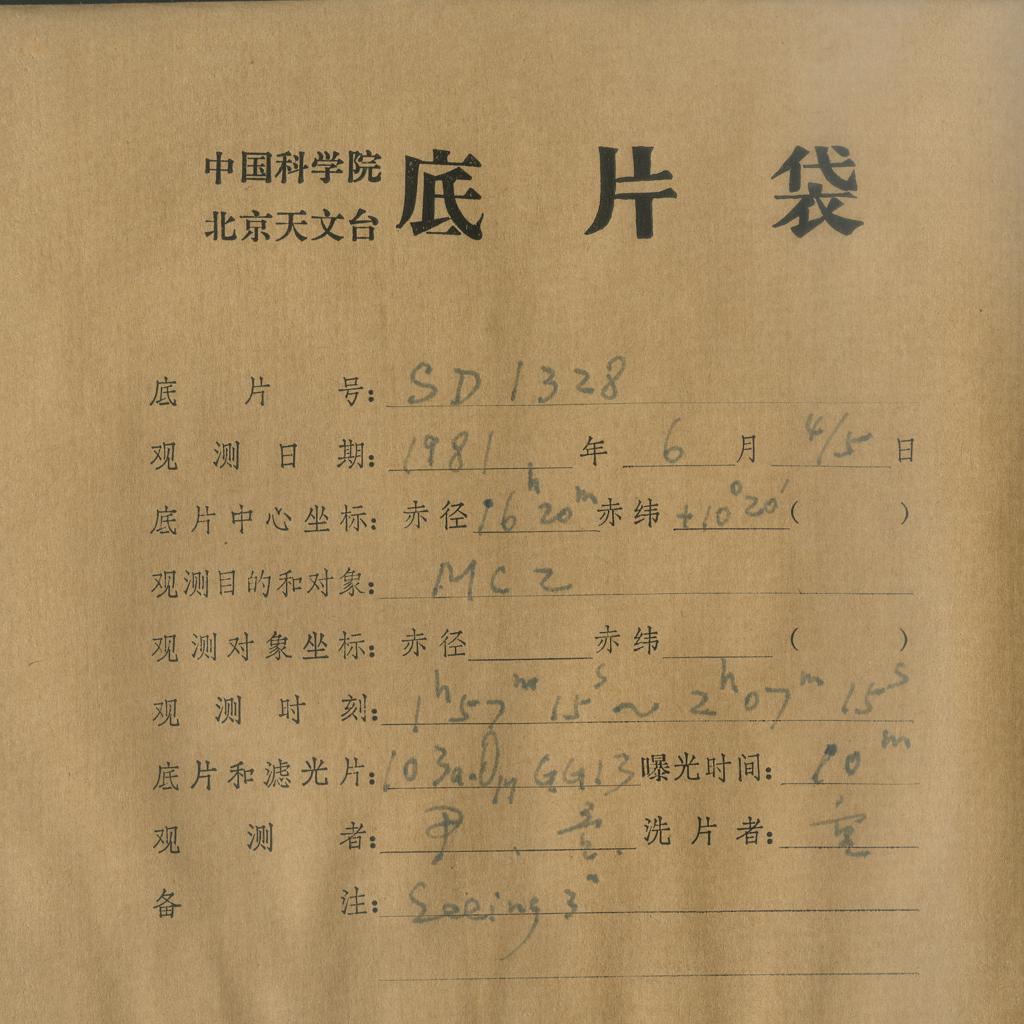 中国科学院
北京天文台
底片袋
底片号：SD 1328
观测日期：1981年6月4/5日
底片中心坐标：赤径16ʰ20ᵐ赤纬+10°20′（ ）
观测目的和对象：MC2
观测对象坐标：赤径 赤纬 （ ）
观测时刻：1ʰ57ᵐ15ˢ～2ʰ07ᵐ15ˢ
底片和滤光片：103a-O GG13曝光时间：10ᵐ
观测者：尹、 洗片者：
备注：Seeing 3"